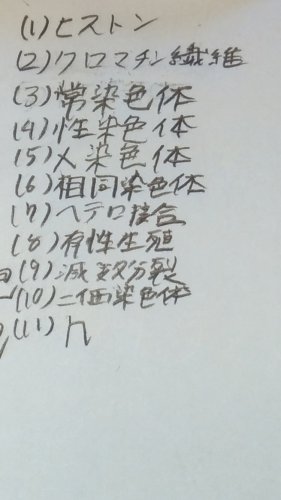 (1)ヒストン
(2)クロマチン繊維
(3)常染色体
(4)性染色体
(5)X染色体
(6)相同染色体
(7)ヘテロ接合
(8)有性生殖
(9)減数分裂
(10)二価染色体
(11)n